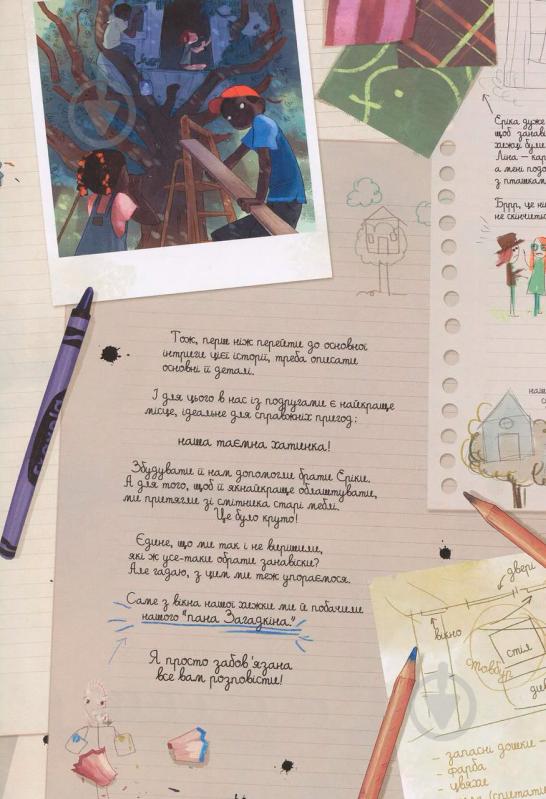 Тож, перш ніж перейти до основної
інтриги цієї історії, треба описати
основні її деталі.
І для цього в нас із подругами є найкраще
місце, ідеальне для справжніх пригод:
наша таємна хатинка!
Збудувати її нам допомогли брати Еріки.
А для того, щоб її якнайкраще облаштувати,
ми притягли зі смітника старі меблі.
Це було круто!
Єдине, що ми так і не вирішили,
які ж усе-таки обрати занавіски?
Але гадаю, з цим ми теж упораємося.
Саме з вікна нашої хижки ми й побачили
нашого "пана Загадкіна".
Я просто забов'язана
все вам розповісти!
Еріка дуже
щоб занаві
хижці були
Ліна — кар
а мені подо
з пташкам
Бррр, це ни
не скінчить
наш
двері
вікно
стіл
Стовбур
див
- запасні дошки -
- фарба
- цвяхи